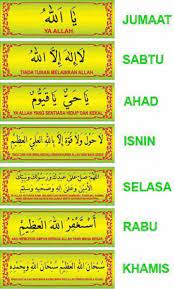 يَا اللّٰهُ
YA ALLAH
JUMAAT
لَا إِلٰهَ إِلَّا اللّٰهُ
TIADA TUHAN MELAINKAN ALLAH
SABTU
يَا حَيُّ يَا قَيُّومُ
YA ALLAH YANG SENTIASA HIDUP DAN KEKAL
AHAD
لَا حَوْلَ وَلَا قُوَّةَ إِلَّا بِاللّٰهِ الْعَلِيِّ الْعَظِيْمِ
ISNIN
اللهم صل على
وعلى آله وصحبه وسلم
SELASA
أَسْتَغْفِرُ اللّٰهَ الْعَظِيْمَ
RABU
سُبْحَانَ اللّٰهِ الْعَظِيْمِ سُبْحَانَ اللّٰهِ وَبِحَمْدِهِ
KHAMIS